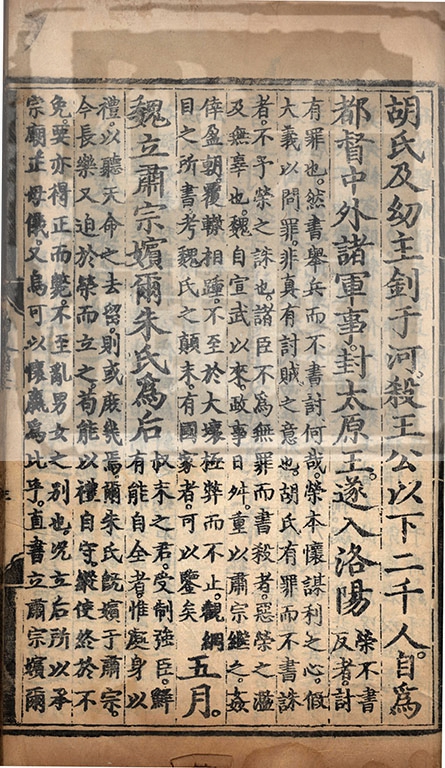 胡氏及幼主釗于河。殺王公以下二千人。自為
都督中外諸軍事。封太原王。遂入洛陽
榮不書
反者。討
有罪也。然書舉兵而不書討何哉。榮本懷謀利之心。假
大義以問罪。非真有討賊之意也。胡氏有罪而不書誅
者。不予榮之誅也。諸臣不為無罪而書殺者。惡榮之濫
及無辜也。魏自宣武以來。政事日舛。重以肅宗繼之。姦
倖盈朝。覆轍相踵。不至於大壞極弊而不止。觀綱
目之所書。考魏氏之顛末。有國家者。可以鑒矣
五月。
魏立肅宗嬪爾朱氏為后
叔末之君。受制強臣。鮮
有能自全者。惟處身以
禮。以聽天命之去留。則或庶幾焉。爾朱氏既嬪于肅宗。
今長樂又迫於榮而立之。苟能以禮自守。縱使終於不
免。要亦得正而斃。不至亂男女之別也。況立后所以承
宗廟正母儀。又烏可以懷嬴為比乎。直書立肅宗嬪爾